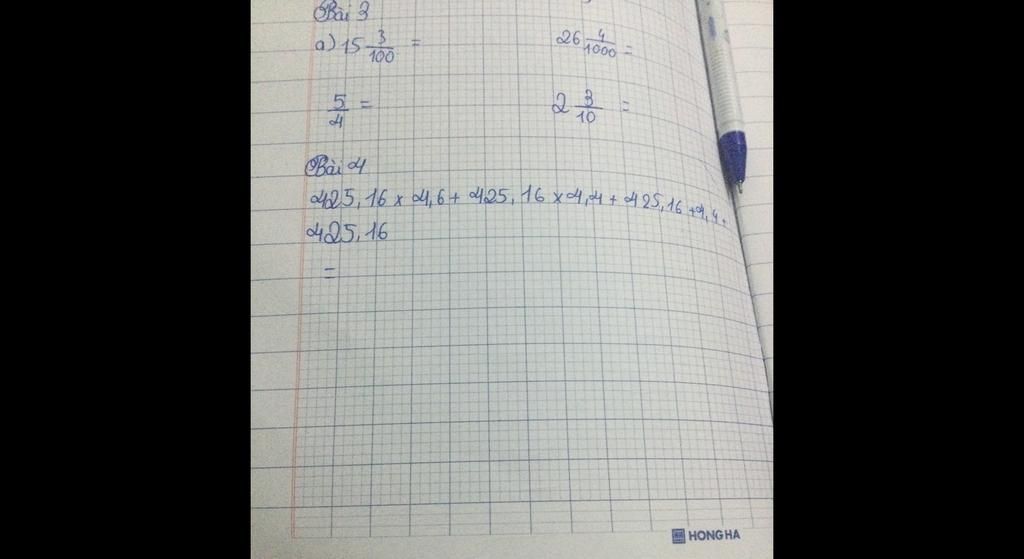 Bài 3
a) 15 3/100 = 26 4/1000 =
5/4 = 2 3/10 =
Bài 4
425,16 x 4,6 + 425,16 x 4,4 + 425,16 + 4,4 +
425,16
=
HONG HA